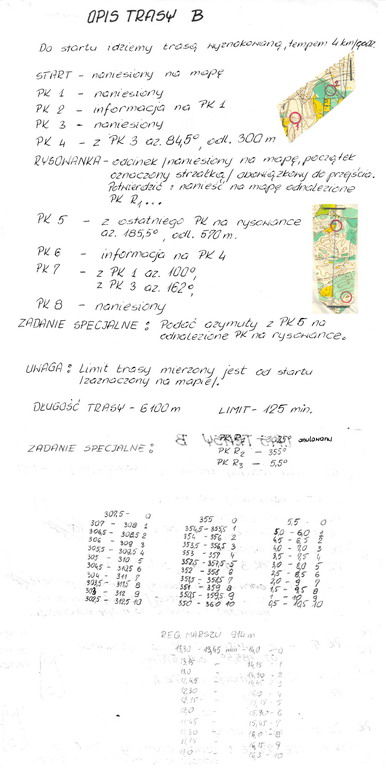 OPIS TRASY B
Do startu idziemy trasą wyznakowaną, tempem 4 km/godz.
START - naniesiony na mapę
PK 1 - naniesiony
PK 2 - informacja na PK 1
PK 3 - naniesiony
PK 4 - z PK 3 az. 84,5°, odl. 300 m
RYSOWANKA - odcinek /naniesiony na mapę, początek
oznaczony strzałką/ obowiązkowy do przejścia.
Potwierdzić i nanieść na mapę odnalezione
PK R1...
PK 5 - z ostatniego PK na rysowance
az. 185,5°, odl. 570 m.
PK 6 - informacja na PK 4
PK 7 - z PK 1 az. 100°,
z PK 3 az. 162°,
PK 8 - naniesiony
ZADANIE SPECJALNE: Podać azymuty z PK 5 na
odnalezione PK na rysowance.
UWAGA: Limit trasy mierzony jest od startu
/zaznaczony na mapie/.
DŁUGOŚĆ TRASY - 6100 m LIMIT - 125 min.
ZADANIE SPECJALNE: anulowany
PK R2 - 355°
PK R3 - 5,5°
307,5 - 0 355 0 5,5 - 0
307 - 308 1 354,5 - 355,5 1 5,0 - 6,0 1
306,5 - 308,5 2 354 - 356 2 4,5 - 6,5 2
306 - 309 3 353,5 - 356,5 3 4,0 - 7,0 3
305,5 - 309,5 4 353 - 357 4 3,5 - 7,5 4
305 - 310 5 352,5 - 357,5 5 3,0 - 8,0 5
304,5 - 310,5 6 352 - 358 6 2,5 - 8,5 6
304 - 311 7 351,5 - 358,5 7 2,0 - 9 7
303,5 - 311,5 8 351 - 359 8 1,5 - 9,5 8
303 - 312 9 350,5 - 359,5 9 1 - 10 9
302,5 - 312,5 10 350 - 360 10 0,5 - 10,5 10
REG. MARSZU 914 m